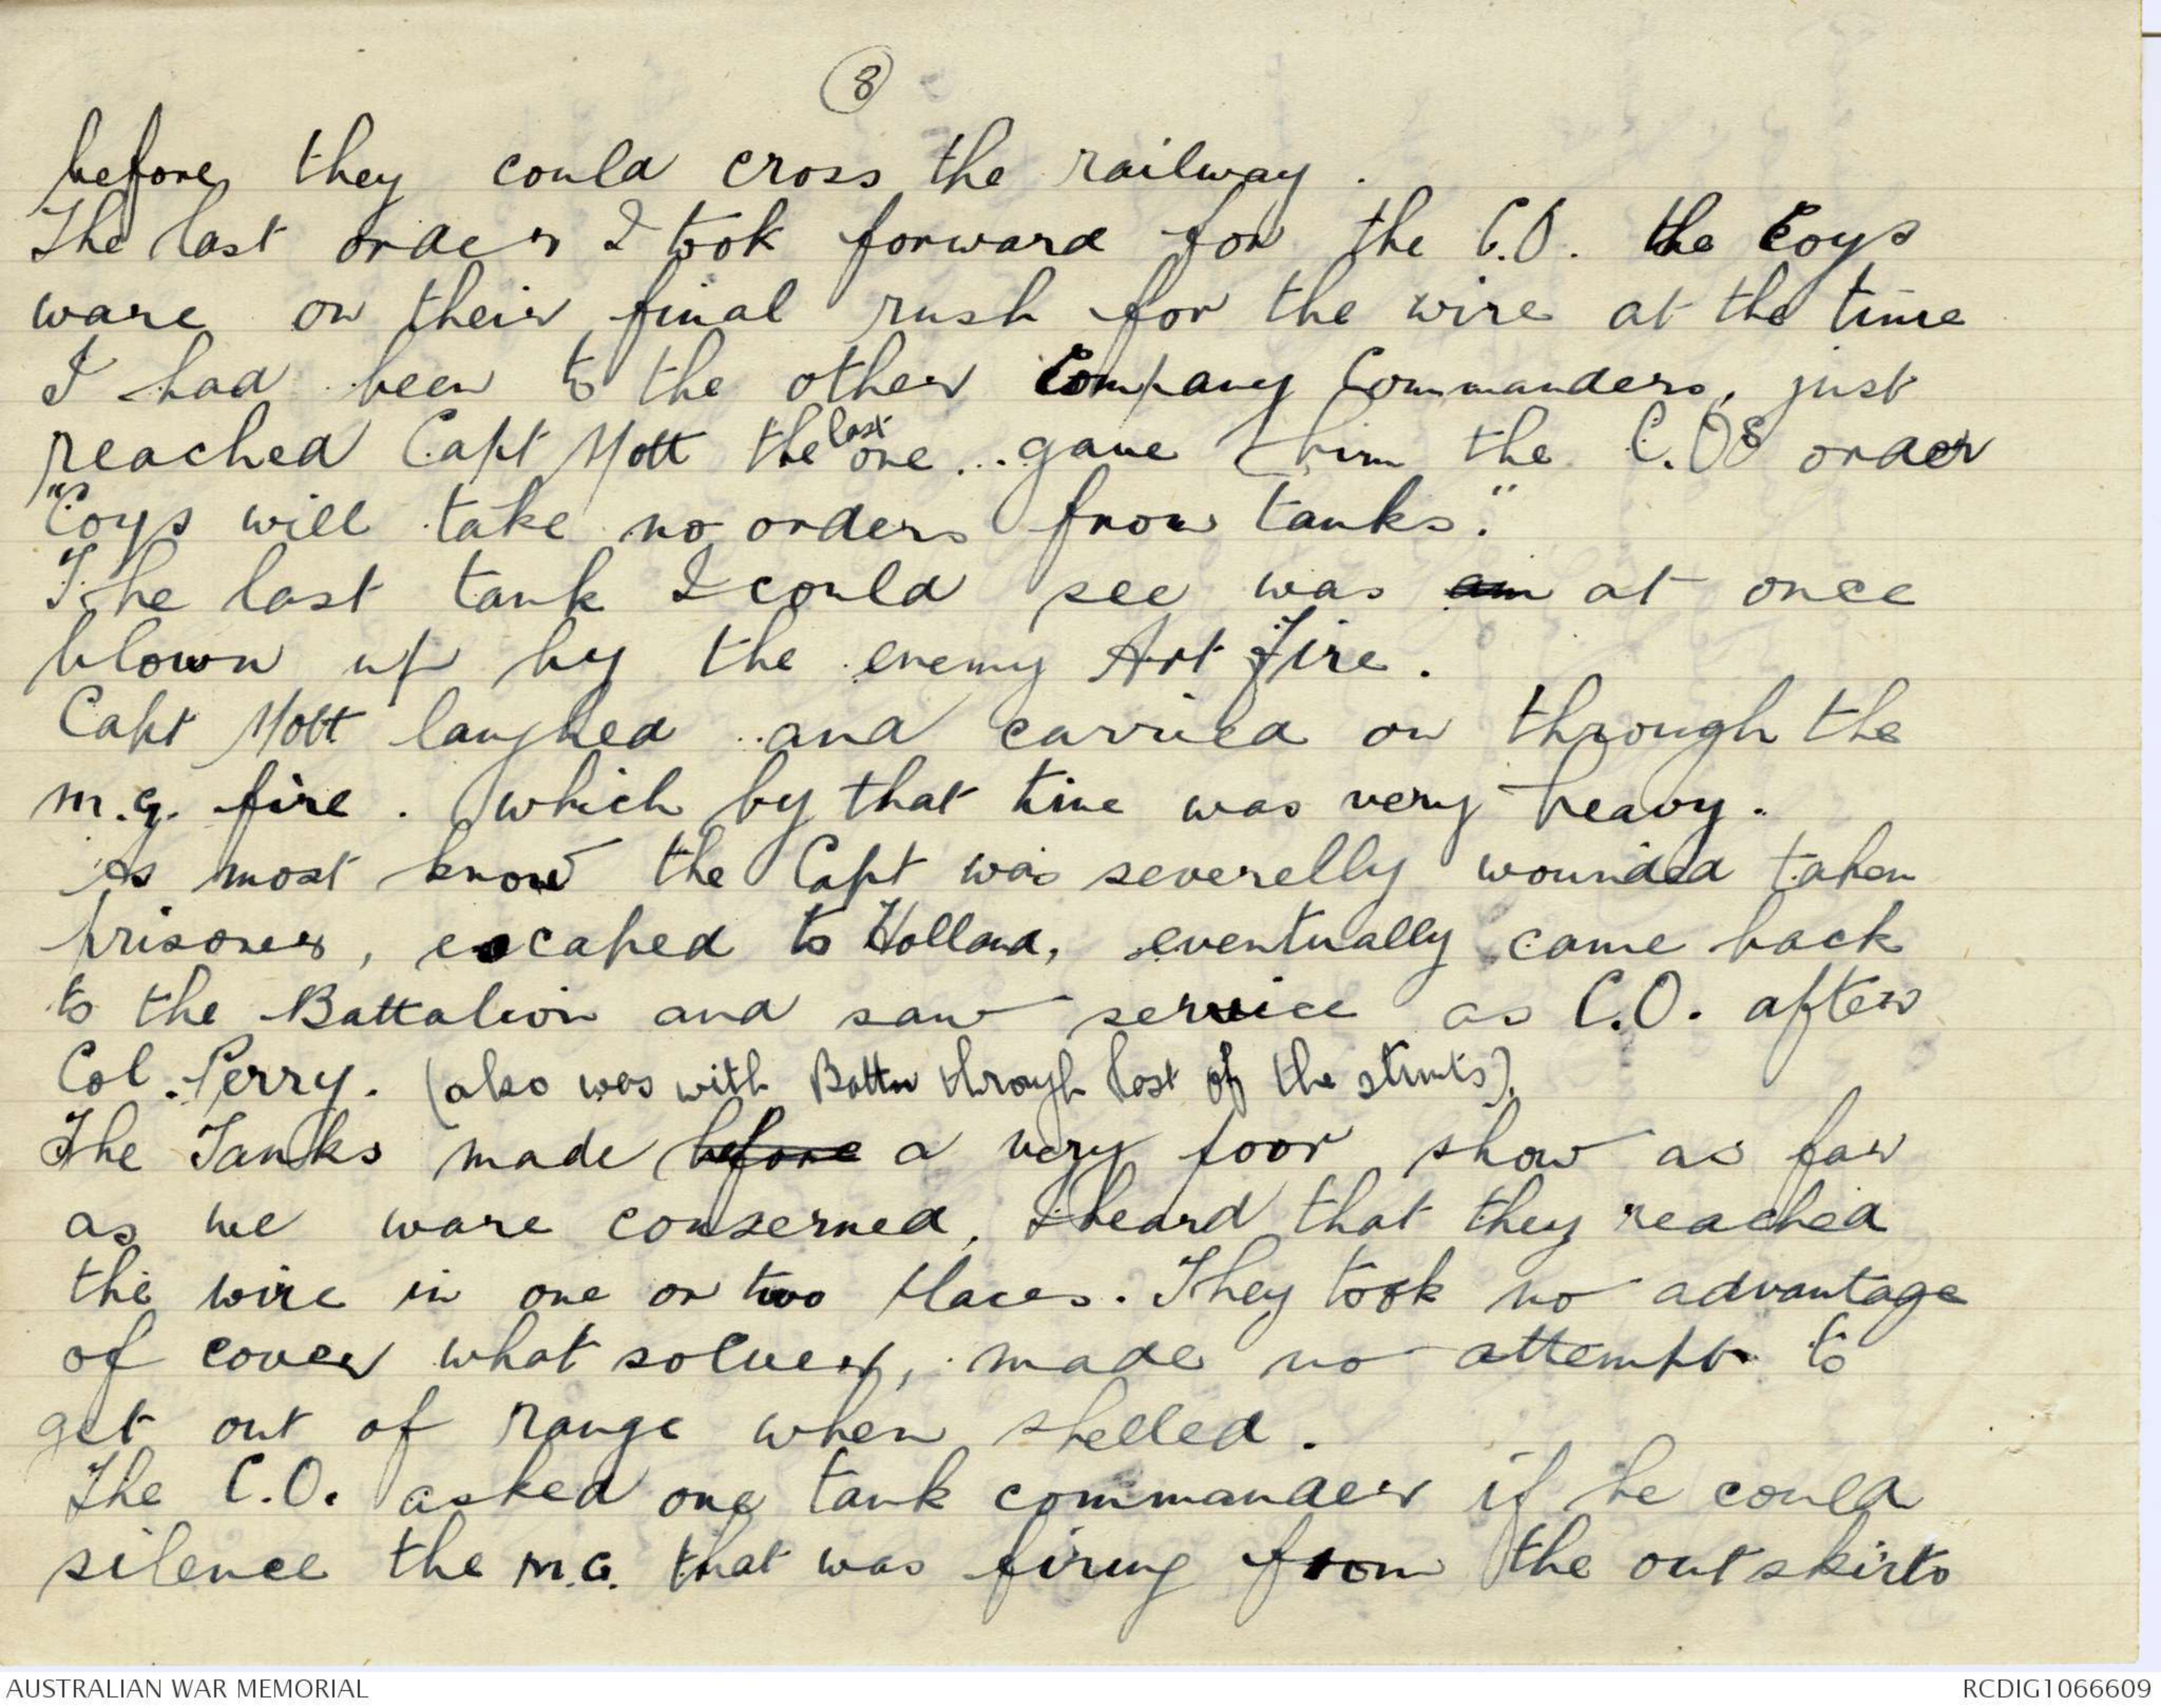 8
before they could cross the railway.
The last order I took forward for the C.O. the Coys
ware on their final rush for the wire at the time
I had been to the other Company Commanders, just
reached Capt Mott the last one... gave him the C.OS order
"Coys will take no orders from tanks."
The last tank I could see was am at once
blown up by the enemy Art fire.
Capt Mott laughed and carried on through the
m.g. fire. which by that time was very heavy.
As most know the Capt was severelly wounded taken
prisoner, escaped to Holland, eventually came back
to the Battalion and saw service as C.O. after
Col. Perry. (also was with Battn through last of the stunts).
The Tanks made before a very poor show as far
as we ware conserned, I heard that they reached
the wire in one or two places. They took no advantage
of cover what soever, made no attempt to
get out of range when shelled.
The C.O. asked one tank commander if he could
silence the M.G. that was firing from the outskirts
AUSTRALIAN WAR MEMORIAL
RCDIG1066609